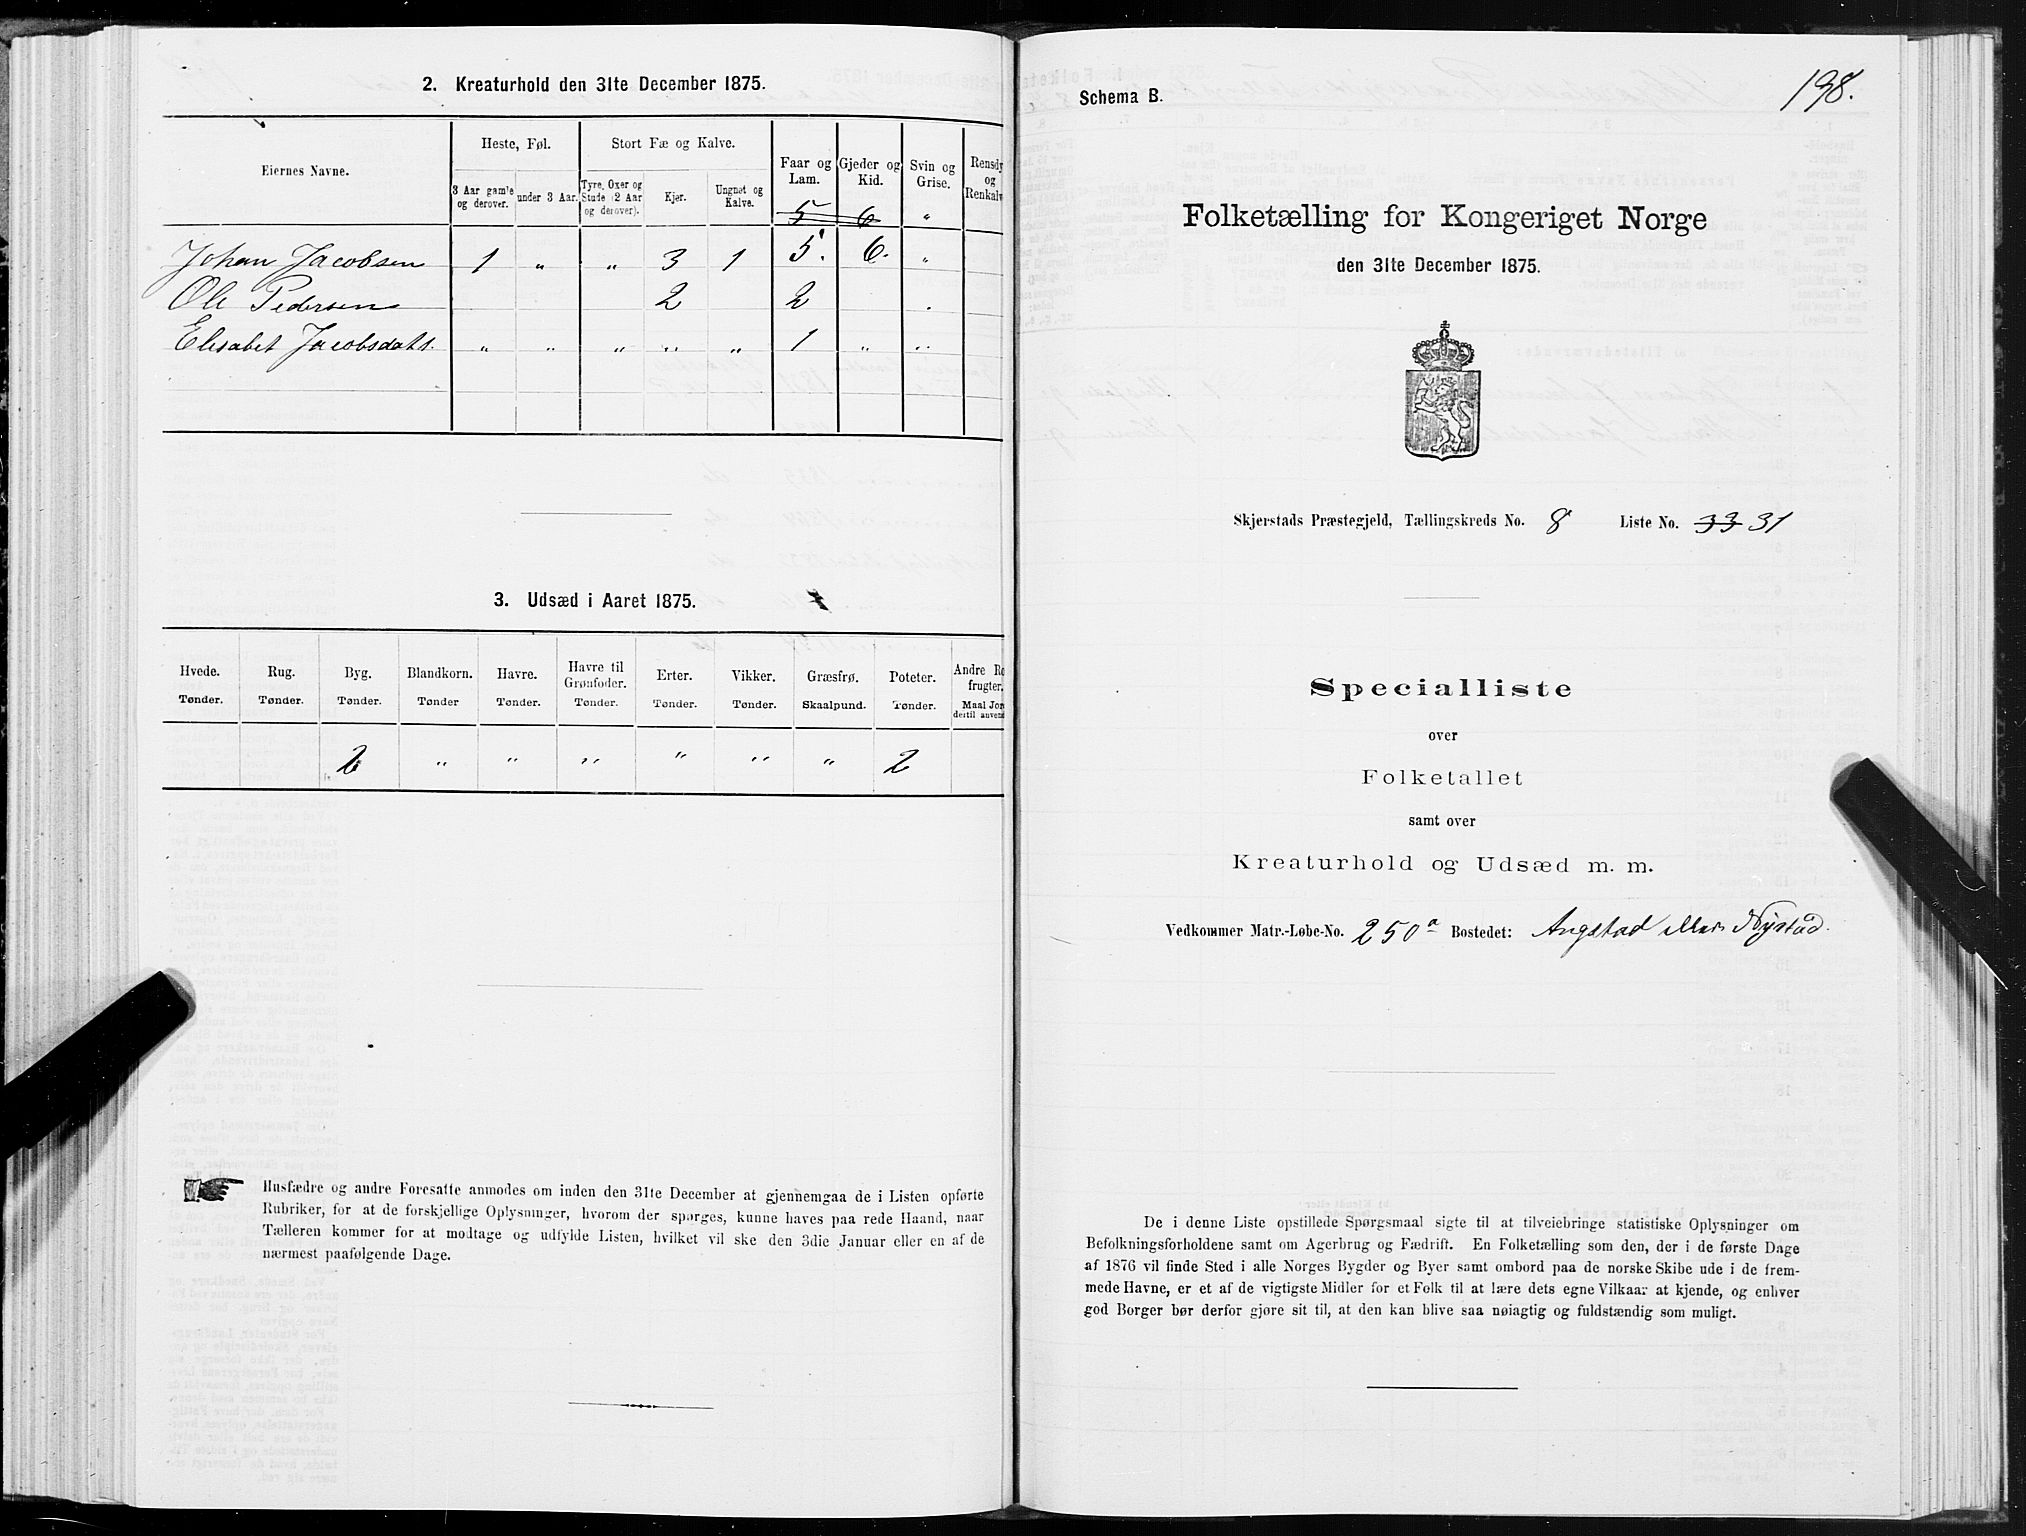 2. Kreaturhold den 31te December 1875.
Eiernes Navne.
Heste, Føl.
Stort Fæ og Kalve.
Faar og Lam.
Gjeder og Kid.
Svin og Grise.
Rensdy og Renkalv
3 Aar gamle og derover.
under 3 Aar.
Tyre, Oxer og Stude (2 Aar og derover).
Kjer.
Ungnøt og Kalve.
5 6 "
Johan Jacobsen 1 " " 3 1 5. 6. "
Ole Pedersen 2 2 .
Elisabet Jacobsdatt. " " " " " 1 " "
3. Udsæd i Aaret 1875.
Hvede. Rug. Byg. Blandkorn. Havre. Havre til Grønfoder. Erter. Vikker. Græsfrø. Poteter. Andre Ro frugter.
Tønder. Tønder. Tønder. Tønder Tønder. Tønder. Tønder. Tønder. Skaalpund. Tønder. Maal Jor dertil anvend
2 " " " " " " 2
Husfædre og andre Foresatte anmodes om inden den 31te December at gjennemgaa de i Listen opførte
Rubriker, for at de forskjellige Oplysninger, hvorom der spørges, kunne haves paa rede Haand, naar
Tælleren kommer for at modtage og udfylde Listen, hvilket vil ske den 3die Januar eller en af de
nærmest paafølgende Dage.
198.
Schema B.
Folketælling for Kongeriget Norge
den 31te December 1875.
Skjerstads Præstegjeld, Tællingskreds No. 8 Liste No. 33 31
Specialliste
over
Folketallet
samt over
Kreaturhold og Udsæd m. m.
Vedkommer Matr.-Løbe-No. 250 a Bostedet: Angstad eller Nystad.
De i denne Liste opstillede Spørgsmaal sigte til at tilveiebringe statistiske Oplysninger om
Befolkningsforholdene samt om Agerbrug og Fædrift. En Folketælling som den, der i de første Dage
af 1876 vil finde Sted i alle Norges Bygder og Byer samt ombord paa de norske Skibe ude i de frem-
mede Havne, er et af de vigtigste Midler for et Folk til at lære dets egne Vilkaar at kjende, og enhver
god Borger bør derfor gjøre sit til, at den kan blive saa nøiagtig og fuldstændig som muligt.